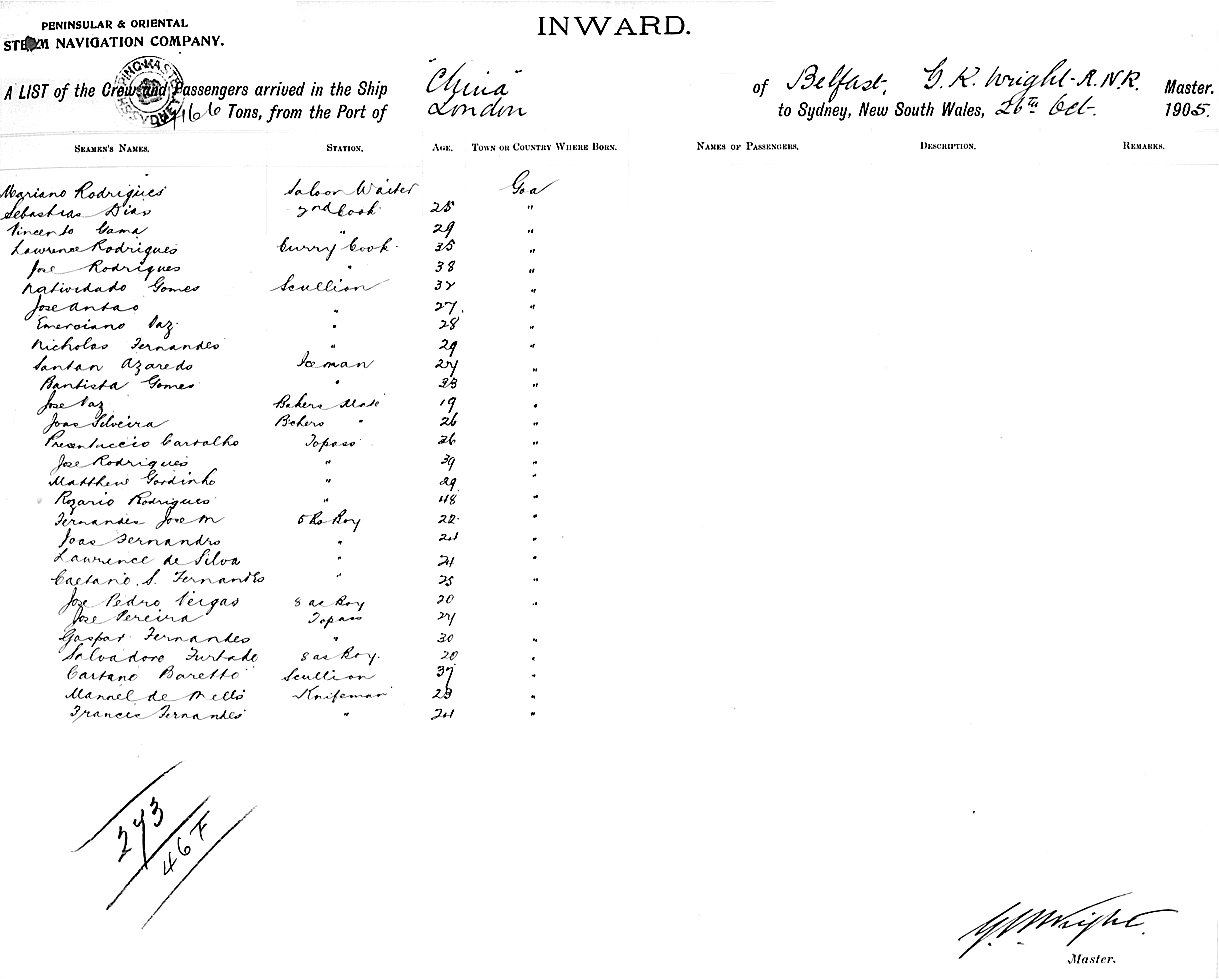 PENINSULAR & ORIENTAL
STEAM NAVIGATION COMPANY.
INWARD.
A LIST of the Crew and Passengers arrived in the Ship "China" of Belfast, G. K. Wright R.N.R. Master.
Tons, from the Port of London to Sydney, New South Wales, 26th Oct. 1905.
SEAMEN'S NAMES. STATION. AGE. TOWN OR COUNTRY WHERE BORN. NAMES OF PASSENGERS. DESCRIPTION. REMARKS.
Mariano Rodrigues Saloon Waiter Goa
Sebastiao Dias 2nd Cook 25 "
Vincento Gama " 29 "
Lawrence Rodrigues Curry Cook 35 "
Jose Rodrigues " 38 "
Natividado Gomes Scullion "
Jose Antao " 27 "
Emerciano Vaz " 28 "
Nicholas Fernandes " 29 "
Santan Azaredo Iceman "
Bautista Gomes " "
Jose Vaz Bakers Mate 19 "
Joao Silveira Bakers " 26 "
Carvalho Topass "
Jose Rodrigues " 39 "
Matthew Godinho " 29 "
Rozario Rodrigues " 48 "
Fernandes Jose M Boy 22 "
Joao Fernandes " "
Lawrence de Silva " "
Caetano S. Fernandes " 25 "
Jose Pedro Viegas 8 as Boy 20 "
Jose Pereira Topass
Gaspar Fernandes " 30 "
Salvadoro Furtado 8 as Boy. 20 "
Caetano Baretto Scullion 37 "
Manuel de Mello Knifeman "
Francis Fernandes " "
243
46 F
G K Wright.
Master.